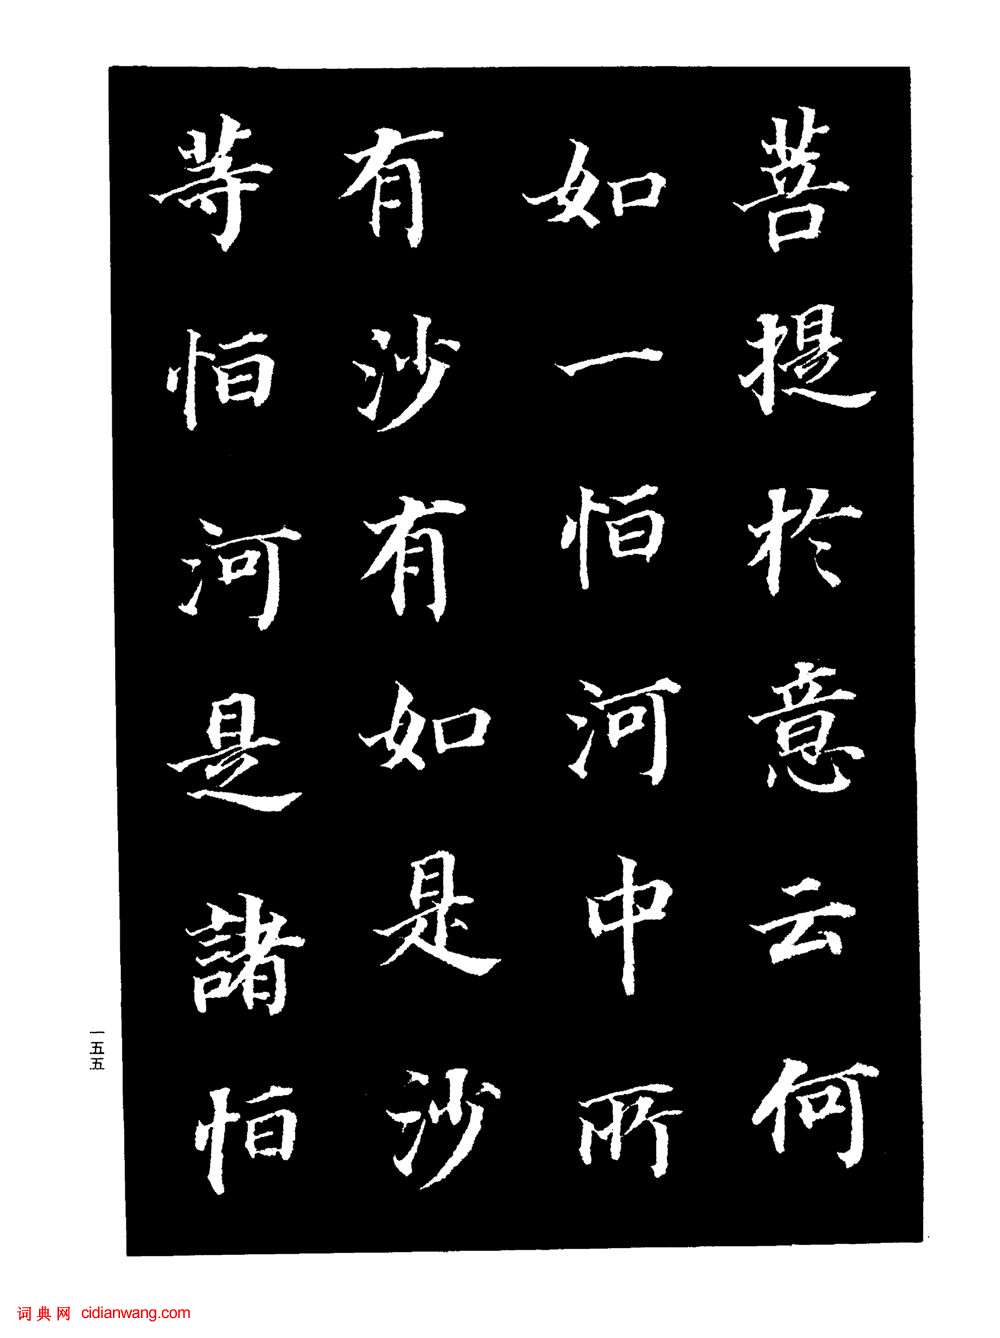 菩提於意云何
如一恒河中所
有沙有如是沙
等恒河是諸恒
一五五
词典网 cidianwang.com